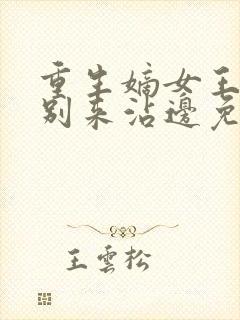 重生嫡女王
别来沾邊免
王雲松